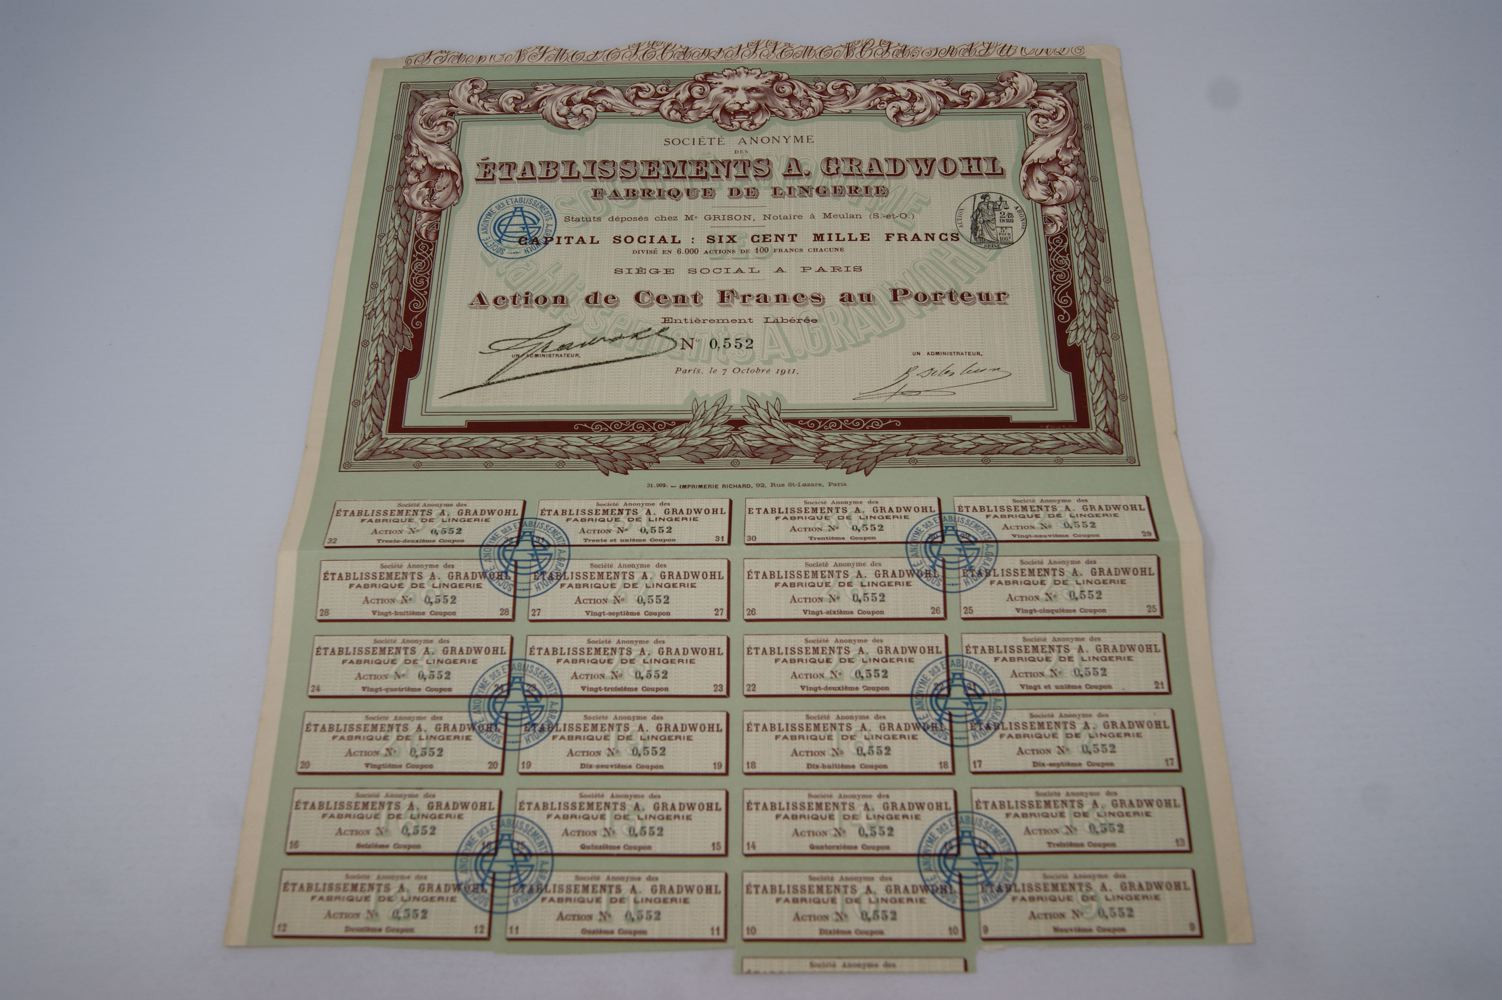 SOCIÉTÉ ANONYME
DES
ÉTABLISSEMENTS A. GRADWOHL
FABRIQUE DE LINGERIE
Statuts déposés chez Me GRISON, Notaire à Meulan (S.-et-O.)
CAPITAL SOCIAL : SIX CENT MILLE FRANCS
DIVISÉ EN 6.000 ACTIONS DE 100 FRANCS CHACUNE
SIÈGE SOCIAL A PARIS
Action de Cent Francs au Porteur
Entièrement Libérée
No 0,552
UN ADMINISTRATEUR,
UN ADMINISTRATEUR,
Paris, le 7 Octobre 1911.
SOCIÉTÉ ANONYME DES ÉTABLISSEMENTS A. GRADWOHL
31.909. — IMPRIMERIE RICHARD, 92, Rue St-Lazare, Paris
Société Anonyme des
ÉTABLISSEMENTS A. GRADWOHL
FABRIQUE DE LINGERIE
ACTION No 0,552
32 Trente-deuxième Coupon
Société Anonyme des
ÉTABLISSEMENTS A. GRADWOHL
FABRIQUE DE LINGERIE
ACTION No 0,552
Trente et unième Coupon 31
Société Anonyme des
ÉTABLISSEMENTS A. GRADWOHL
FABRIQUE DE LINGERIE
ACTION No 0,552
30 Trentième Coupon
Société Anonyme des
ÉTABLISSEMENTS A. GRADWOHL
FABRIQUE DE LINGERIE
ACTION No 0,552
Vingt-neuvième Coupon 29
Société Anonyme des
ÉTABLISSEMENTS A. GRADWOHL
FABRIQUE DE LINGERIE
ACTION No 0,552
28 Vingt-huitième Coupon 28
Société Anonyme des
ÉTABLISSEMENTS A. GRADWOHL
FABRIQUE DE LINGERIE
ACTION No 0,552
27 Vingt-septième Coupon 27
Société Anonyme des
ÉTABLISSEMENTS A. GRADWOHL
FABRIQUE DE LINGERIE
ACTION No 0,552
26 Vingt-sixième Coupon 26
Société Anonyme des
ÉTABLISSEMENTS A. GRADWOHL
FABRIQUE DE LINGERIE
ACTION No 0,552
25 Vingt-cinquième Coupon 25
Société Anonyme des
ÉTABLISSEMENTS A. GRADWOHL
FABRIQUE DE LINGERIE
ACTION No 0,552
24 Vingt-quatrième Coupon
Société Anonyme des
ÉTABLISSEMENTS A. GRADWOHL
FABRIQUE DE LINGERIE
ACTION No 0,552
Vingt-troisième Coupon 23
Société Anonyme des
ÉTABLISSEMENTS A. GRADWOHL
FABRIQUE DE LINGERIE
ACTION No 0,552
22 Vingt-deuxième Coupon
Société Anonyme des
ÉTABLISSEMENTS A. GRADWOHL
FABRIQUE DE LINGERIE
ACTION No 0,552
Vingt et unième Coupon 21
Société Anonyme des
ÉTABLISSEMENTS A. GRADWOHL
FABRIQUE DE LINGERIE
ACTION No 0,552
20 Vingtième Coupon 20
Société Anonyme des
ÉTABLISSEMENTS A. GRADWOHL
FABRIQUE DE LINGERIE
ACTION No 0,552
19 Dix-neuvième Coupon 19
Société Anonyme des
ÉTABLISSEMENTS A. GRADWOHL
FABRIQUE DE LINGERIE
ACTION No 0,552
18 Dix-huitième Coupon 18
Société Anonyme des
ÉTABLISSEMENTS A. GRADWOHL
FABRIQUE DE LINGERIE
ACTION No 0,552
17 Dix-septième Coupon 17
Société Anonyme des
ÉTABLISSEMENTS A. GRADWOHL
FABRIQUE DE LINGERIE
ACTION No 0,552
16 Seizième Coupon
Société Anonyme des
ÉTABLISSEMENTS A. GRADWOHL
FABRIQUE DE LINGERIE
ACTION No 0,552
Quinzième Coupon 15
Société Anonyme des
ÉTABLISSEMENTS A. GRADWOHL
FABRIQUE DE LINGERIE
ACTION No 0,552
14 Quatorzième Coupon
Société Anonyme des
ÉTABLISSEMENTS A. GRADWOHL
FABRIQUE DE LINGERIE
ACTION No 0,552
Treizième Coupon 13
Société Anonyme des
ÉTABLISSEMENTS A. GRADWOHL
FABRIQUE DE LINGERIE
ACTION No 0,552
12 Douzième Coupon 12
Société Anonyme des
ÉTABLISSEMENTS A. GRADWOHL
FABRIQUE DE LINGERIE
ACTION No 0,552
11 Onzième Coupon 11
Société Anonyme des
ÉTABLISSEMENTS A. GRADWOHL
FABRIQUE DE LINGERIE
ACTION No 0,552
10 Dixième Coupon 10
Société Anonyme des
ÉTABLISSEMENTS A. GRADWOHL
FABRIQUE DE LINGERIE
ACTION No 0,552
9 Neuvième Coupon 9
Société Anonyme des